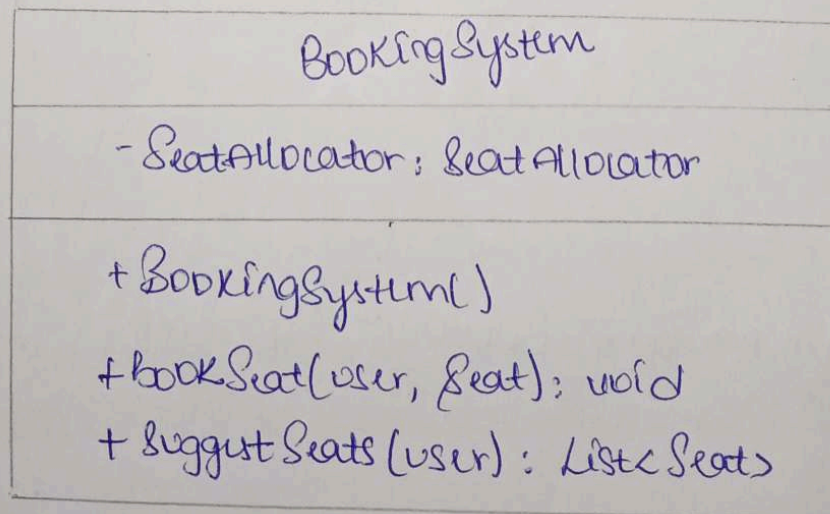 BookingSystem
- SeatAllocator: SeatAllocator
+ BookingSystem()
+ bookSeat(user, Seat): void
+ suggestSeats(user): List<Seat>